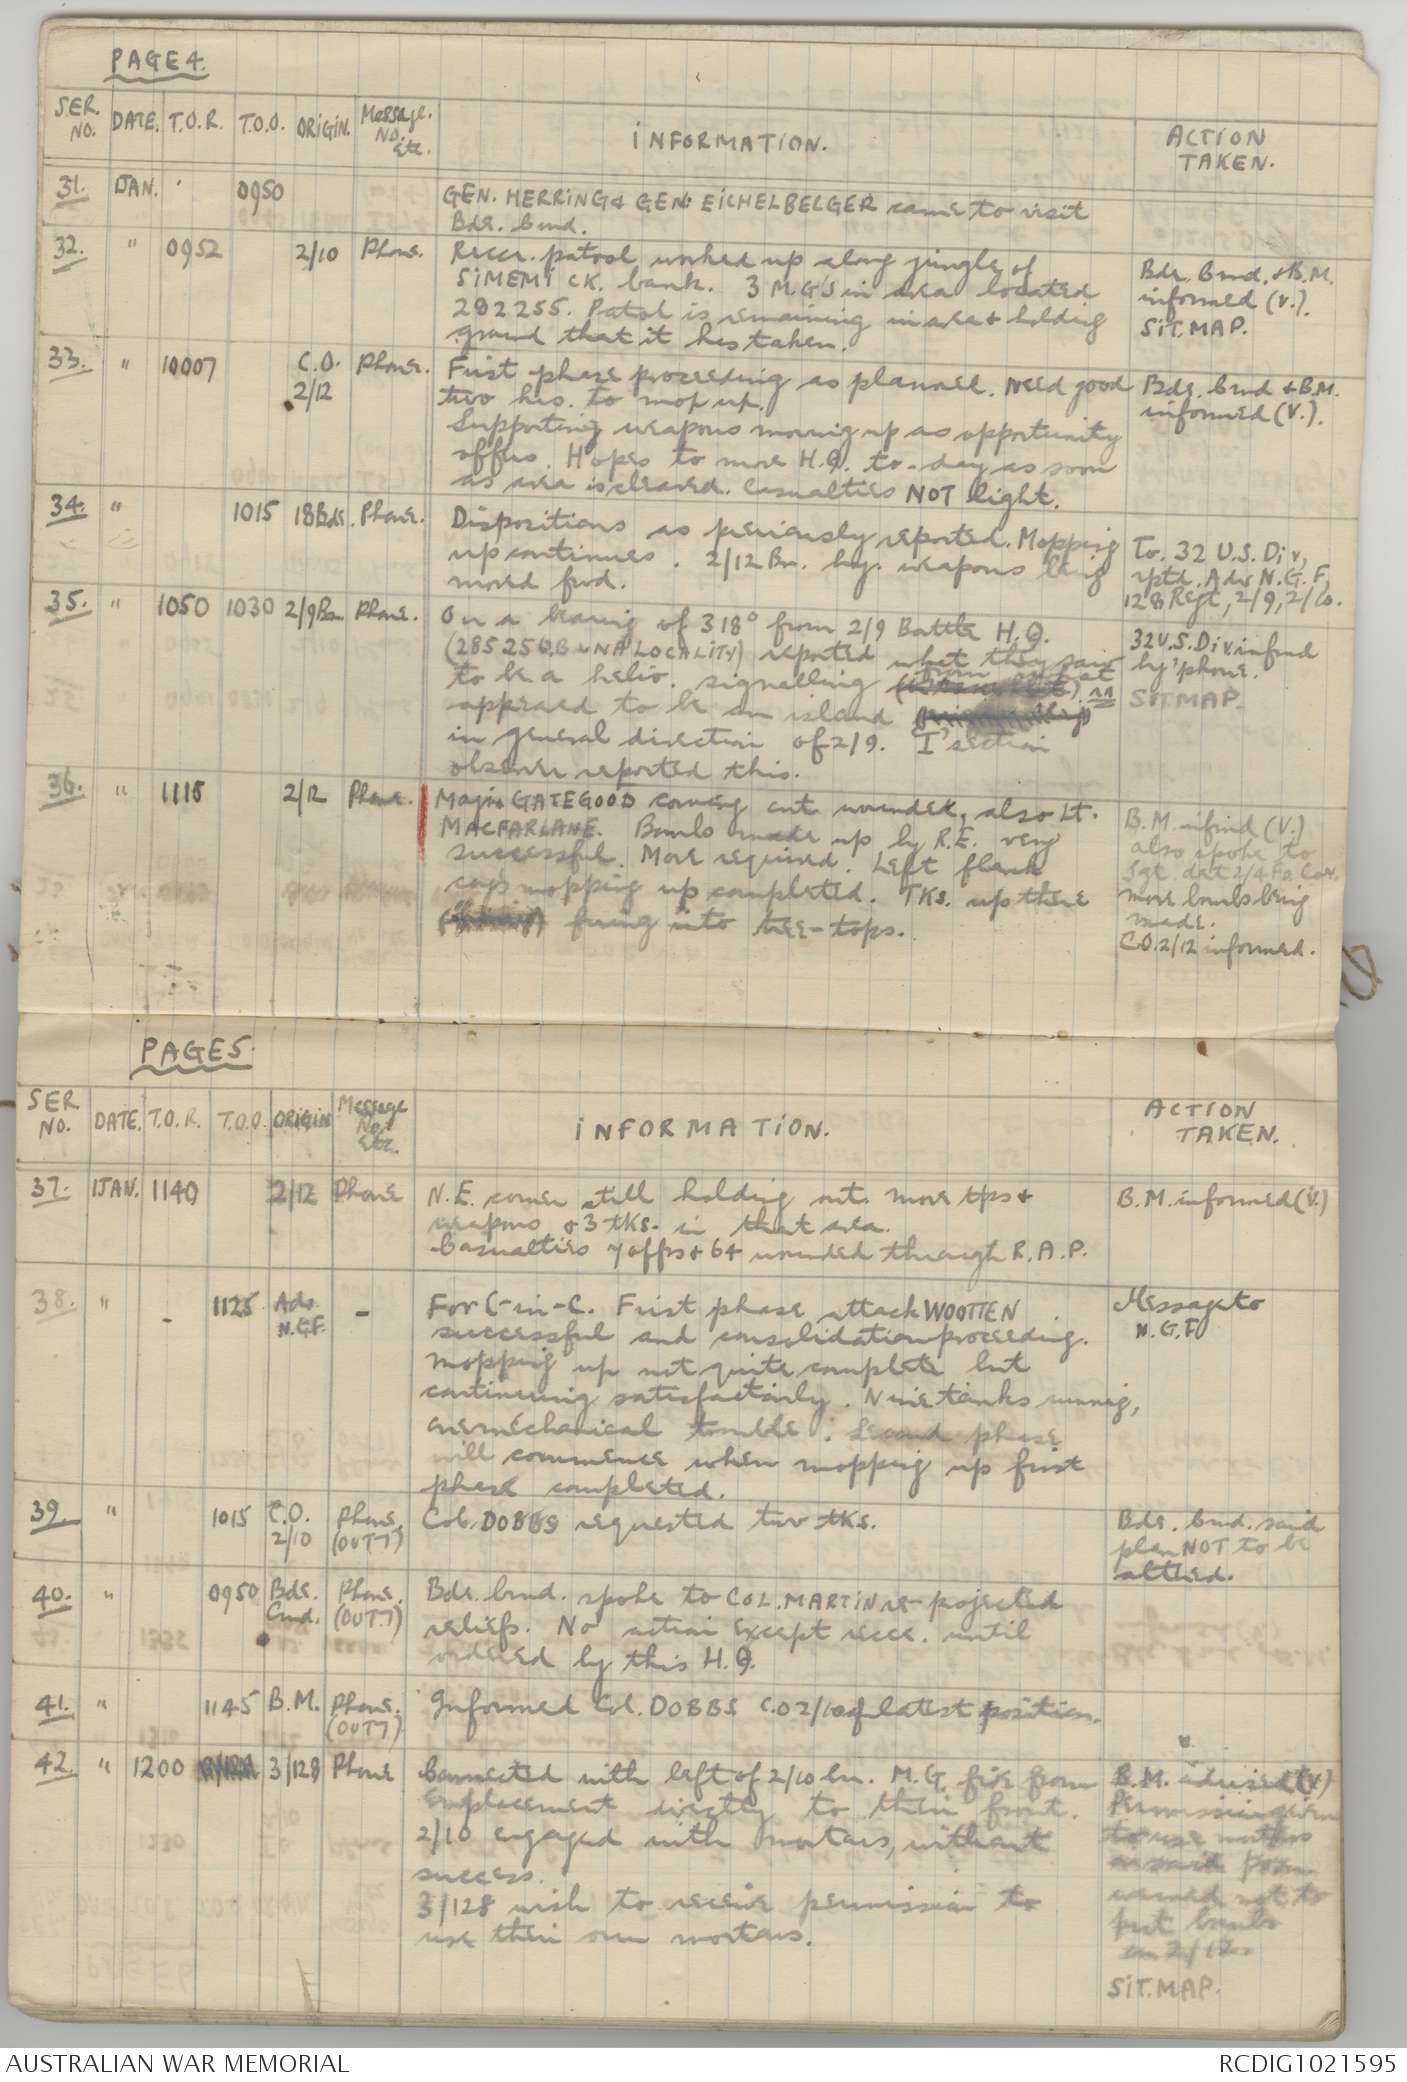 PAGE 4.
SER. NO. DATE. T.O.R. T.O.O. ORIGIN. Message. No. Etc. INFORMATION. ACTION TAKEN.
31. 1JAN. 0950 GEN. HERRING & GEN. EICHELBERGER came to visit
Bde. Cmd.
32. " 0952 2/10 Phone. Recce. patrol worked up along jungle of
SIMEMI CK. bank. 3 M.G's in area located
282255. Patrol is remaining in area & holding
ground that it has taken.
Bde. Cmd. & B.M.
informed (V.).
SIT.MAP.
33. " 10007 C.O. 2/12 Phone. First phase proceeding as planned. Need good
two hrs. to mop up.
Supporting weapons moving up as opportunity
offers. Hopes to move H.Q. to-day as soon
as area is cleared. Casualties NOT light.
Bde. Cmd & B.M.
informed (V.).
34. " 1015 18 Bde. Phone. Dispositions as previously reported. Mopping
up continues. 2/12 Bn. hvy. weapons being
moved fwd.
To. 32 U.S. Div,
rptd. Adv N.G.F,
128 Regt, 2/9, 2/10.
35. " 1050 1030 2/9 Bn. Phone. On a bearing of 318° from 2/9 Battle H.Q.
(285250, BUNA LOCALITY) reported what they saw
to be a helio. signalling from what
appeared to be an island
in general direction of 2/9. 'I' section
observer reported this.
32 U.S. Div. infmd
by 'phone.
SITMAP.
36. " 1115 2/12 Phone. Major GATEGOOD coming out wounded, also Lt.
MACFARLANE. Bombs made up by R.E. very
successful. More required. Left flank
coys mopping up completed. TKS. up there
firing into tree-tops.
B.M. infmd (V.)
also spoke to
Sgt. det 2/4 Fd Coy.
more bombs being
made.
C.O. 2/12 informed.
PAGE 5.
SER NO. DATE. T.O.R. T.O.O. ORIGIN Message No. Etc. INFORMATION. ACTION TAKEN.
37. 1JAN. 1140 2/12 Phone N.E. corner still holding out. More tps &
weapons & 3 tks. in that area.
Casualties 7 offrs & 64 wounded through R.A.P.
B.M. informed (V.)
38. " - 1125 Adv. N.G.F. - For C-in-C. First phase attack WOOTTEN
successful and consolidation proceeding.
Mopping up not quite complete but
continuing satisfactorily. Nine tanks running,
one mechanical trouble. Second phase
will commence when mopping up first
phase completed.
Message to
N.G.F
39. " 1015 C.O. 2/10 Phone. (OUT7) Col. DOBBS requested two tks.
Bde. Cmd. said
plan NOT to be
altered.
40. " 0950 Bde. Cmd. Phone. (OUT7) Bde. Cmd. spoke to COL. MARTIN re projected
reliefs. No action except recce. until
ordered by this H.Q.
41. " 1145 B.M. Phone. (OUT7) Informed Col. DOBBS C.O 2/10 of latest position.
42. " 1200 3/128 Phone Connected with left of 2/10 bn. M.G. fire from
emplacement directly to their front.
2/10 engaged with mortars, without
success.
3/128 wish to receive permission to
use their own mortars.
B.M. advised (V.)
Permission given
to use mortars
warned not to
put bombs
on 2/12.
SIT.MAP.
AUSTRALIAN WAR MEMORIAL RCDIG1021595